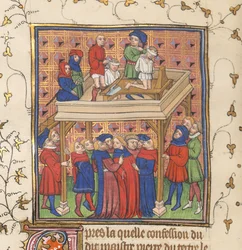 pres la quelle confession du
dit maistre pierre du tertre le